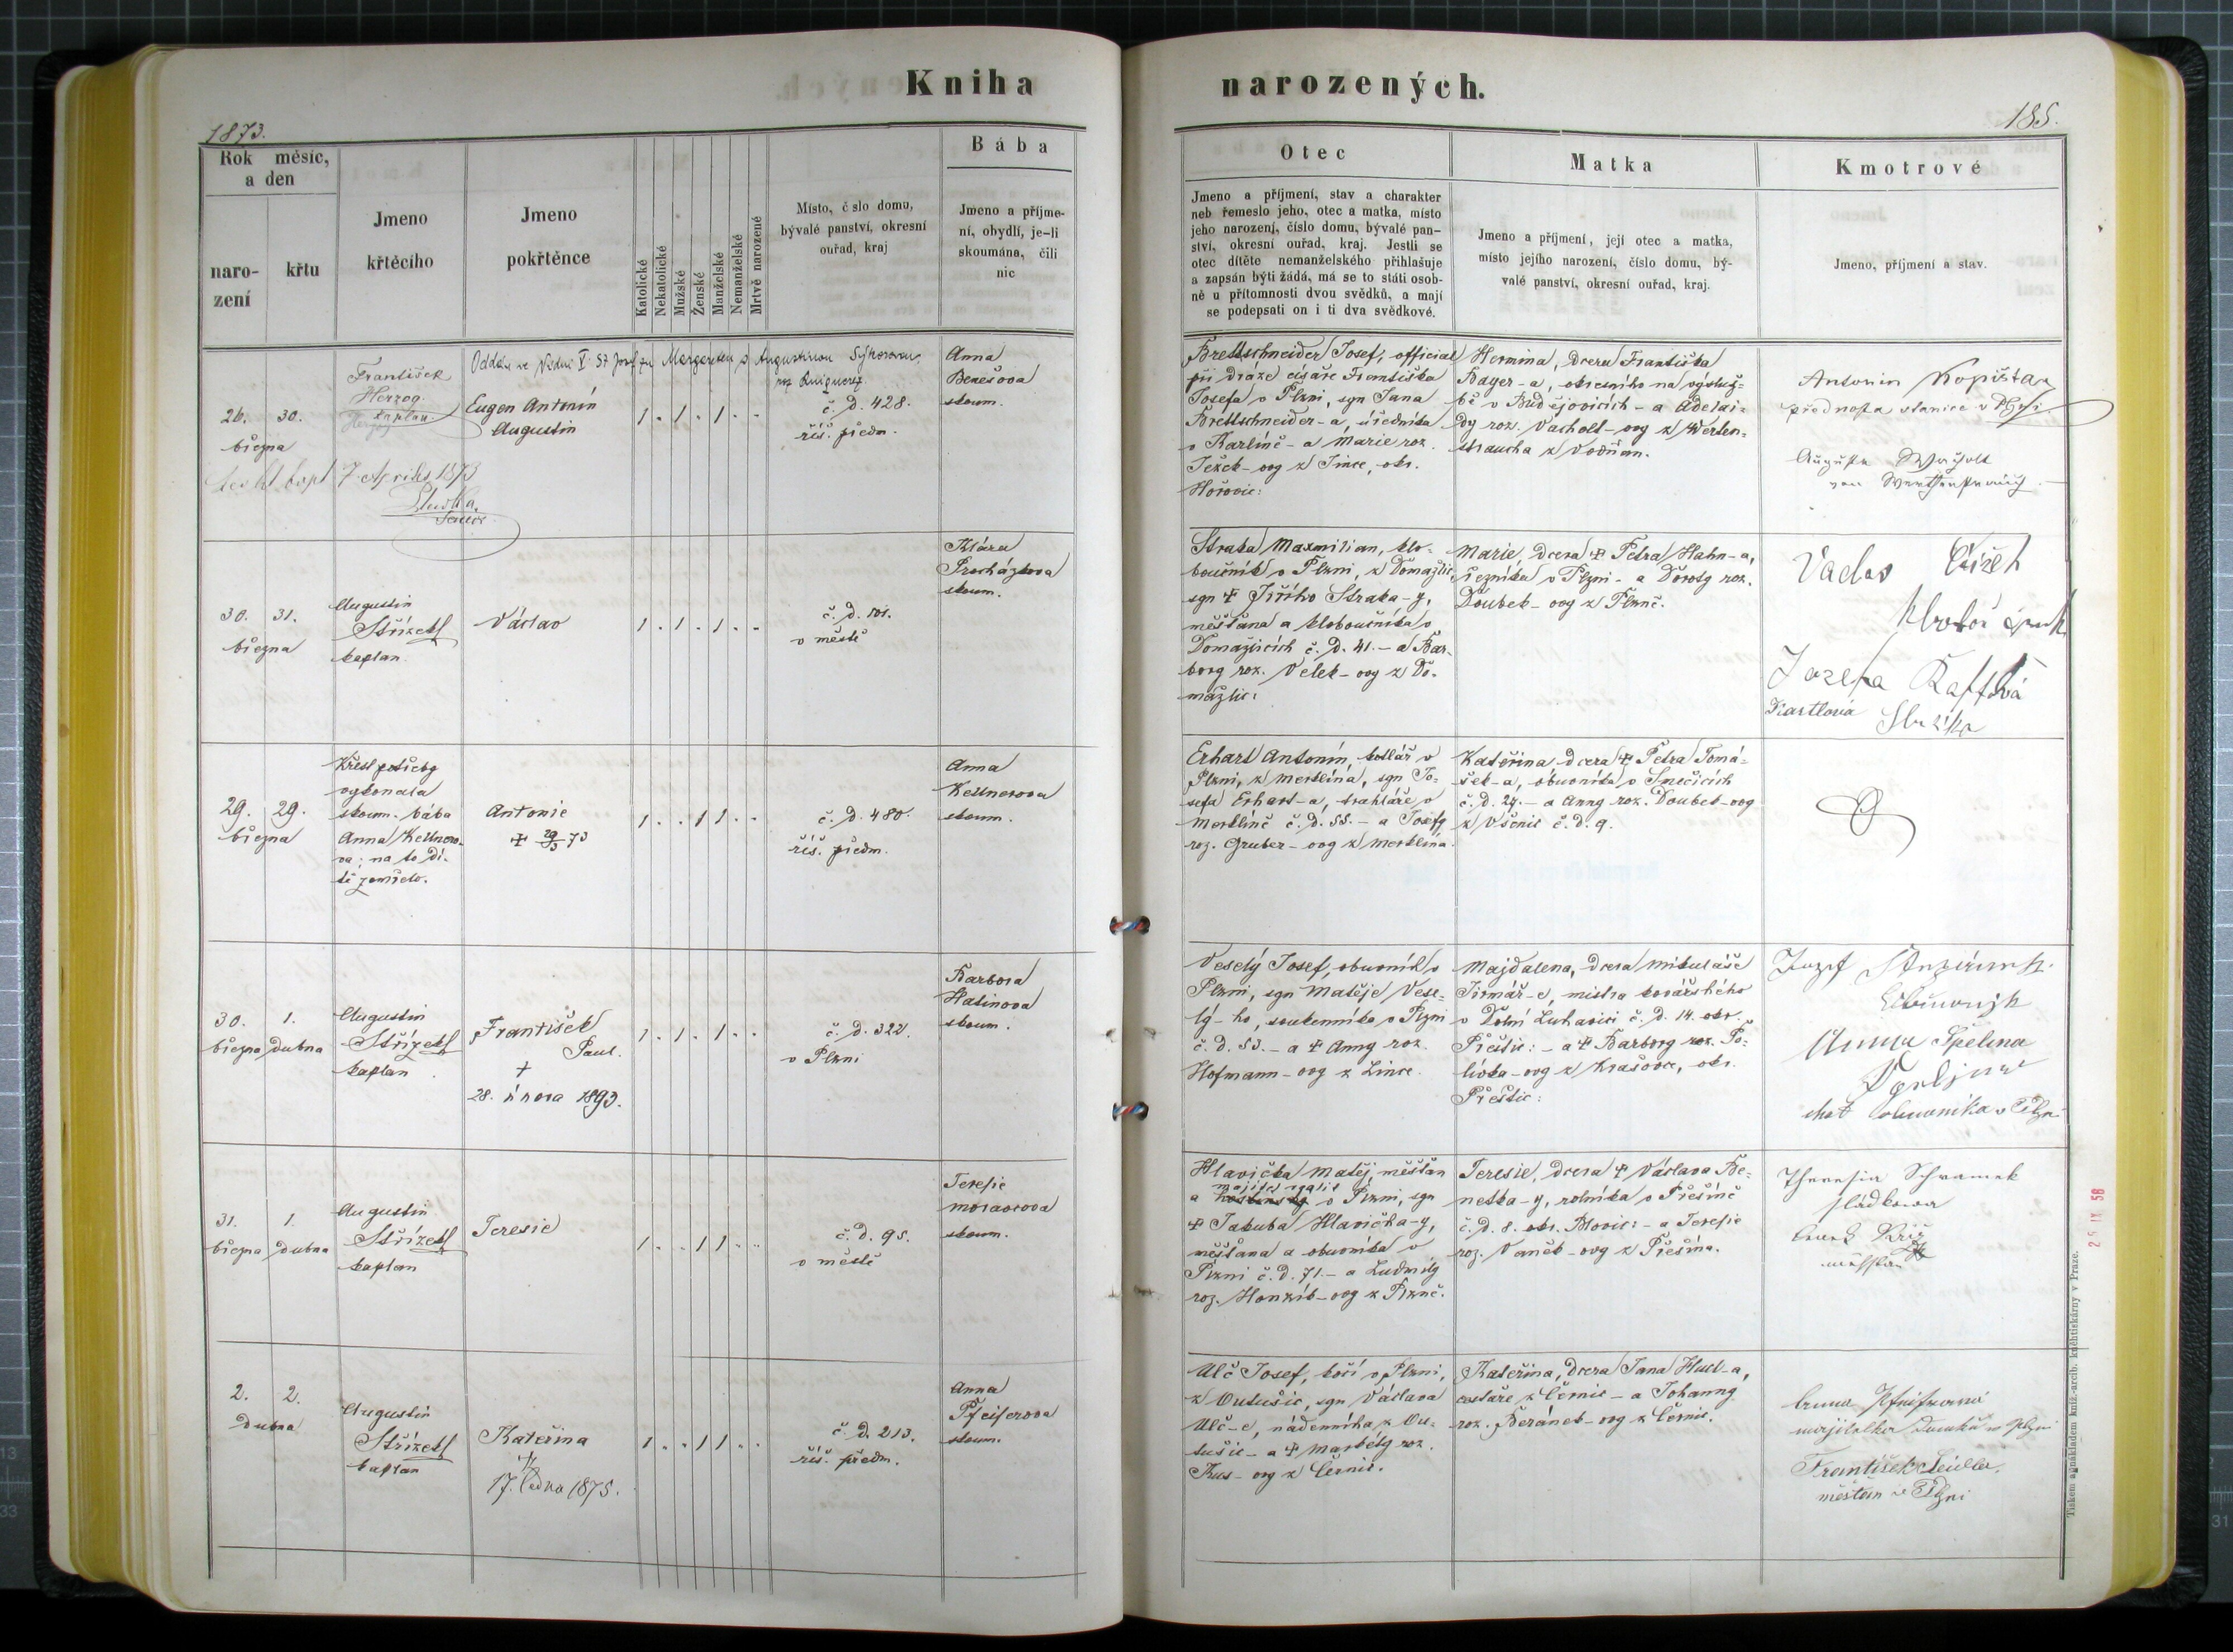 Kniha
narozených.
1873.
185.
Rok měsíc,
a den
naro-
zení
křtu
Jmeno
křtěcího
Jmeno
pokřtěnce
Katolické
Nekatolické
Mužské
Ženské
Manželské
Nemanželské
Mrtvě narozené
Místo, č slo domu,
bývalé panství, okresní
ouřad, kraj
Bába
Jmeno a příjme-
ní, obydlí, je-li
skoumána, čili
nic
Otec
Jmeno a příjmení, stav a charakter
neb řemeslo jeho, otec a matka, místo
jeho narození, číslo domu, bývalé pan-
ství, okresní ouřad, kraj. Jestli se
otec dítěte nemanželského přihlašuje
a zapsán býti žádá, má se to státi osob-
ně u přítomnosti dvou svědků, a mají
se podepsati on i ti dva svědkové.
Matka
Jmeno a příjmení, její otec a matka,
místo jejího narození, číslo domu, bý-
valé panství, okresní ouřad, kraj.
Kmotrové
Jmeno, příjmení a stav.
26. 30.
března
František
Herzog
kaplan
Eugen Antonín
Augustin
1 . 1 . 1 . .
č. d. 428.
říš. předm.
Anna
Benešova
skoum.
7 Aprilis 1873
Brettschneider Josef, official
při dráze císaře Františka
Josefa v Plzni, syn Jana
Brettschneider-a, úředníka
v Karlíně - a Marie roz.
Ježek-ovy z Jince, okr.
Hořovic:
Hermina, dcera Františka
Bayer-a, okresního na výsluž-
bě v Budějovicích - a Adelai-
dy roz. Vacholt-ovy z Werten-
straucha z Vodňan.
Antonín Kopista
přednosta stanice v Plzni
30. 31.
března
Augustin
Střízek
kaplan.
Václav
1 . 1 . 1 . .
č. d. 101.
v městě
Klára
Procházkova
skoum.
Straka Maxmilian, klo-
boučník v Plzni, z Domažlic,
syn + Jiřího Straka-y,
měšťana a kloboučníka v
Domažlicích č. d. 41. - a Bar-
bory roz. Velek-ovy z Do-
mažlic:
Marie, dcera + Petra Hahn-a,
řezníka v Plzni - a Doroty roz.
Doubek-ovy z Plzně.
29. 29.
března
Křest potřeby
vykonala
skoum. bába
Anna Kellnero-
va; na to dí-
tě zemřelo.
Antonie
+ 29/3 73
1 . . 1 1 . .
č. d. 480.
říš. předm.
Anna
Kellnerova
skoum.
Erhart Antonín, kotlář v
Plzni, z Merklína, syn Jo-
sefa Erhart-a, truhláře v
Merklíně č. d. 55. - a Josefy
roz. Gruber-ovy z Merklína.
Kateřina dcera + Petra Tomá-
šek-a, obuvníka v Snečicích
č. d. 24. - a Anny roz. Doubek-ovy
z Všenic č. d. 9.
30. 1.
března dubna
Augustin
Střízek
kaplan
František
Paul.
+
28. února 1893.
1 . 1 . 1 . .
č. d. 322.
v Plzni
Barbora
Halinova
skoum.
Veselý Josef, obuvník v
Plzni, syn Matěje Vese-
lý-ho, soukenníka v Plzni
č. d. 53. - a + Anny roz.
Hofmann-ovy z Lince.
Majdalena, dcera Mikuláše
Jirmář-e, mistra kovářského
v Dolní Luhavici č. d. 14. okr.
Přeštic: - a + Barbory roz. Po-
lívka-ovy z Krašovce, okr.
Přeštic:
Anna Špelina
31. 1.
března dubna
Augustin
Střízek
kaplan
Teresie
1 . . 1 1 . .
č. d. 95.
v městě
Teresie
Moravcova
skoum.
Hlavička Matěj, měšťan
a v Plzni, syn
+ Jakuba Hlavička-y,
měšťana a obuvníka v
Plzni č. d. 71. - a Ludmily
roz. Honzík-ovy z Plzně.
Teresie, dcera + Václava Be-
netka-y, rolníka v Přešíně
č. d. 8. okr. Blovic: - a Teresie
roz. Vaněk-ovy z Přešína.
Theresia Schramek
sládkova
2. 2.
dubna
Augustin
Střízek
kaplan
Kateřina
17. ledna 1875.
1 . . 1 1 . .
č. d. 213.
říš. předm.
Anna
Pfeiferova
skoum.
Ulč Josef, kočí v Plzni,
z Outušic, syn Václava
Ulč-e, nádenníka z Ou-
tušic - a + Markéty roz.
Kus-ovy z Černic.
Kateřina, dcera Jana Hucl-a,
cestáře z Černic - a Johanny
roz. Beránek-ovy z Černic.
František
měšťan v Plzni
Tiskem a nákladem kníž.-arcib. kněhtiskárny v Praze.